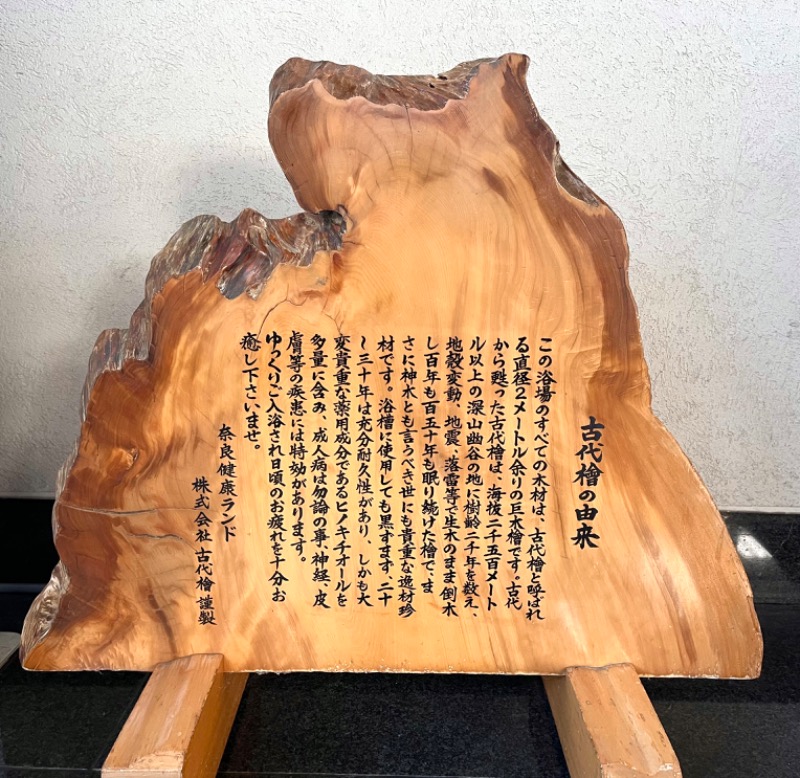 古代檜の由来
この浴場のすべての木材は、古代檜と呼ばれ
る直径2メートル余りの巨木檜です。古代
から甦った古代檜は、海抜二千五百メート
ル以上の深山幽谷の地に樹齢二千年を数え、
地殻変動、地震、落雷等で生木のまま倒木
し百年も百五十年も眠り続けた檜で、ま
さに神木とも言うべき世にも貴重な逸材珍
材です。浴槽に使用しても黒ずまず、二十
~三十年は充分耐久性があり、しかも大
変貴重な薬用成分であるヒノキチオールを
多量に含み、成人病は勿論の事、神経、皮
膚等の疾患には特効があります。
ゆっくりご入浴され日頃のお疲れを十分お
癒し下さいませ。
奈良健康ランド
株式会社 古代檜 謹製